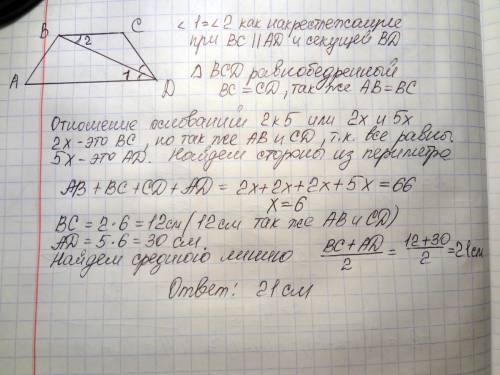 B C
2
A 1 D
< 1 = < 2 как накрестлежащие
при BC || AD и секущей BD
Δ BCD равнобедренный
BC = CD, так же AB = BC
Отношение оснований 2 к 5 или 2x и 5x
2x - это BC, но так же AB и CD, т.к. все равны.
5x - это AD. Найдем стороны из периметра
AB + BC + CD + AD = 2x + 2x + 2x + 5x = 66
x = 6
BC = 2 · 6 = 12 см (12 см так же AB и CD)
AD = 5 · 6 = 30 см.
Найдем среднюю линию (BC + AD)/2 = (12 + 30)/2 = 21 см
Ответ: 21 см